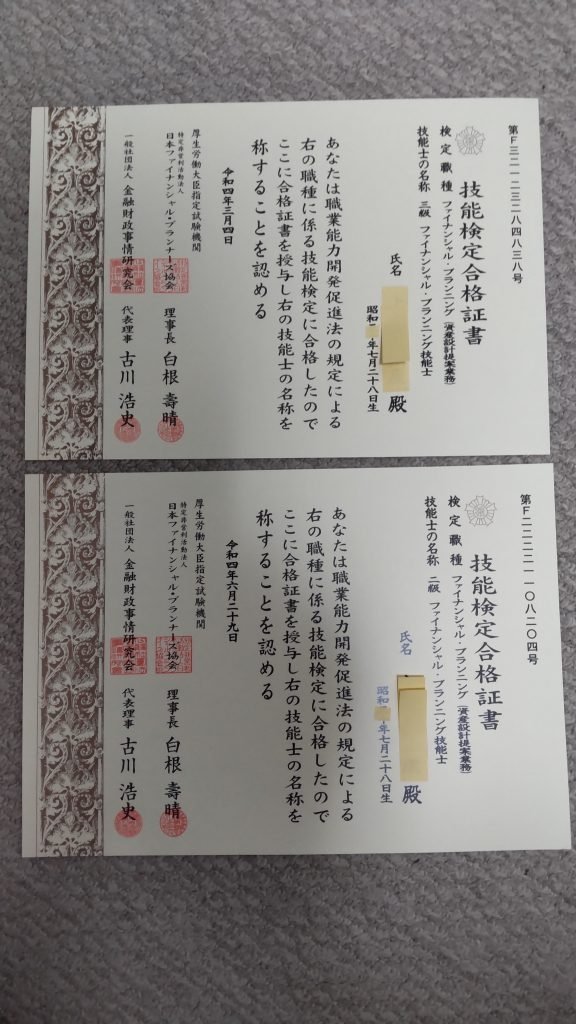 第F三二一二三二八四八三八号
技能検定合格証書
検定職種 ファイナンシャル・プランニング（資産設計提案業務）
技能士の名称 三級 ファイナンシャル・プランニング技能士
氏名 殿
昭和 年七月二十八日生
あなたは職業能力開発促進法の規定による
右の職種に係る技能検定に合格したので
ここに合格証書を授与し右の技能士の名称を
称することを認める
令和四年三月四日
厚生労働大臣指定試験機関
特定非営利活動法人
日本ファイナンシャル・プランナーズ協会 理事長 白根 壽晴
一般社団法人 金融財政事情研究会 代表理事 古川 浩史
第F二二二二一一〇八二〇四号
技能検定合格証書
検定職種 ファイナンシャル・プランニング（資産設計提案業務）
技能士の名称 二級 ファイナンシャル・プランニング技能士
氏名 殿
昭和 年七月二十八日生
あなたは職業能力開発促進法の規定による
右の職種に係る技能検定に合格したので
ここに合格証書を授与し右の技能士の名称を
称することを認める
令和四年六月二十九日
厚生労働大臣指定試験機関
特定非営利活動法人
日本ファイナンシャル・プランナーズ協会 理事長 白根 壽晴
一般社団法人 金融財政事情研究会 代表理事 古川 浩史